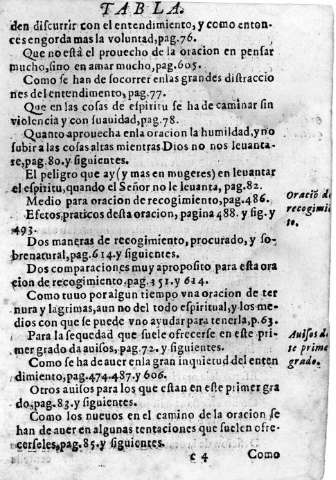 TABLA.
den discurrir con el entendimiento, y como enton-
ces engorda mas la voluntad, pag. 76.
Que no está el prouecho de la oracion en pensar
mucho, sino en amar mucho, pag. 605.
Como se han de socorrer en las grandes distraccio
nes del entendimento, pag. 77.
Que en las cosas de espiritu se ha de caminar sin
violencia y con suauidad, pag. 78.
Quanto aprouecha en la oracion la humildad, y no
subir a las cosas altas mientras Dios no nos leuanta-
re, pag. 80. y siguientes.
El peligro que ay (y mas en mugeres) en leuantar
el espiritu, quando el Señor no le leuanta, pag. 82.
Medio para oracion de recogimiento, pag. 486.
Efetos praticos desta oracion, pagina 488. y sig. y
493.
Oració de
recogimié
to.
Dos maneras de recogimiento, procurado, y so-
brenatural, pag. 614. y siguientes.
Dos comparaciones muy a proposito para esta ora
cion de recogimiento, pag. 351. y 614.
Como tuuo por algun tiempo vna oracion de ter
nura y lagrimas, aun no del todo espiritual, y los me-
dios con que se puede vno ayudar para tenerla, p. 63.
Para la sequedad que suele ofrecerse en este pri-
mer grado da auisos, pag. 72. y siguientes.
Auisos de
ste prime
grado.
Como se ha de auer en la gran inquietud del enten
dimiento, pag. 474. 487. y 606.
Otros auisos para los que estan en este primer gra
do, pag. 83. y siguientes.
Como los nueuos en el camino de la oracion se
han de auer en algunas tentaciones que suelen ofre-
cerseles, pag. 85. y siguientes.
¢ 4 Como